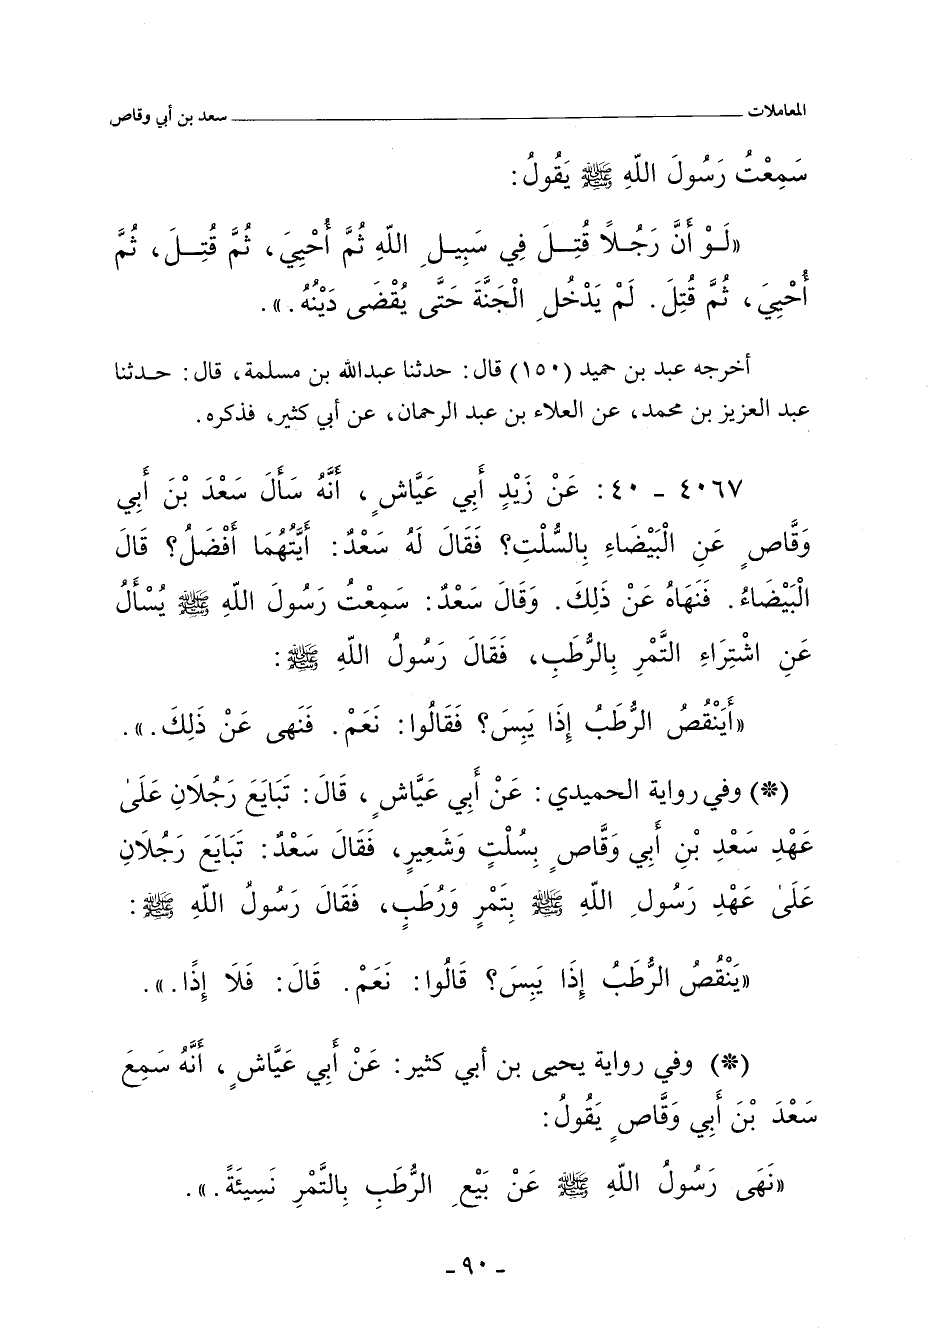 المعاملات ـــــــــــــــــــــــــــــــــ سعد بن أبي وقاص
سَمِعْتُ رَسُولَ اللّهِ ﷺ يَقُولُ:
«لَوْ أَنَّ رَجُلاً قُتِلَ فِي سَبِيلِ اللّهِ ثُمَّ أُحْيِيَ، ثُمَّ قُتِلَ، ثُمَّ
أُحْيِيَ، ثُمَّ قُتِلَ. لَمْ يَدْخُلِ الْجَنَّةَ حَتَّى يُقْضَى دَيْنُهُ.».
أخرجه عبد بن حميد (١٥٠) قال: حدثنا عبدالله بن مسلمة، قال: حدثنا
عبد العزيز بن محمد، عن العلاء بن عبد الرحمان، عن أبي كثير، فذكره.
٤٠٦٧ - ٤٠: عَنْ زَيْدٍ أَبِي عَيَّاشٍ، أَنَّهُ سَأَلَ سَعْدَ بْنَ أَبِي
وَقَّاصٍ عَنِ الْبَيْضَاءِ بِالسُّلْتِ؟ فَقَالَ لَهُ سَعْدٌ: أَيَّتُهُمَا أَفْضَلُ؟ قَالَ
الْبَيْضَاءُ. فَنَهَاهُ عَنْ ذَلِكَ. وَقَالَ سَعْدٌ: سَمِعْتُ رَسُولَ اللّهِ ﷺ يُسْأَلُ
عَنِ اشْتِرَاءِ التَّمْرِ بِالرُّطَبِ، فَقَالَ رَسُولُ اللّهِ ﷺ:
«أَيَنْقُصُ الرُّطَبُ إِذَا يَبِسَ؟ فَقَالُوا: نَعَمْ. فَنَهَى عَنْ ذَلِكَ.».
(*) وفي رواية الحميدي: عَنْ أَبِي عَيَّاشٍ، قَالَ: تَبَايَعَ رَجُلَانِ عَلَىٰ
عَهْدِ سَعْدِ بْنِ أَبِي وَقَّاصٍ بِسُلْتٍ وَشَعِيرٍ، فَقَالَ سَعْدٌ: تَبَايَعَ رَجُلَانِ
عَلَىٰ عَهْدِ رَسُولِ اللّهِ ﷺ بِتَمْرٍ وَرُطَبٍ، فَقَالَ رَسُولُ اللّهِ ﷺ:
«يَنْقُصُ الرُّطَبُ إِذَا يَبِسَ؟ قَالُوا: نَعَمْ. قَالَ: فَلَا إِذًا.».
(*) وفي رواية يحيى بن أبي كثير: عَنْ أَبِي عَيَّاشٍ، أَنَّهُ سَمِعَ
سَعْدَ بْنَ أَبِي وَقَّاصٍ يَقُولُ:
«نَهَى رَسُولُ اللّهِ ﷺ عَنْ بَيْعِ الرُّطَبِ بِالتَّمْرِ نَسِيئَةً.».
- ٩٠ -